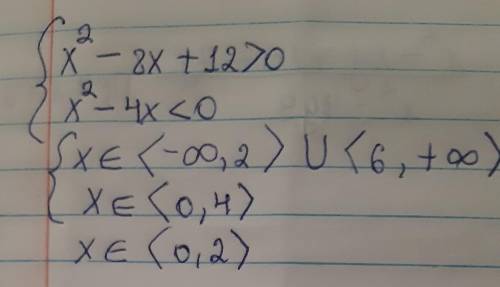 { x² - 8x + 12 > 0
x² - 4x < 0
{ x ∈ ⟨-∞, 2⟩ ∪ ⟨6, +∞⟩
x ∈ ⟨0, 4⟩
x ∈ ⟨0, 2⟩